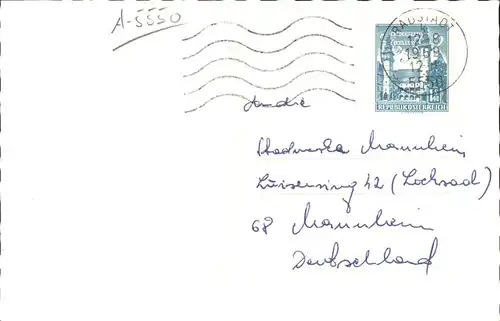 A-5550
RADSTADT
1969
12
5550
REPUBLIK ÖSTERREICH
An die
Stadwerke Mannheim
Luisenring 42 (Lochsaal)
68 Mannheim
Deutschland